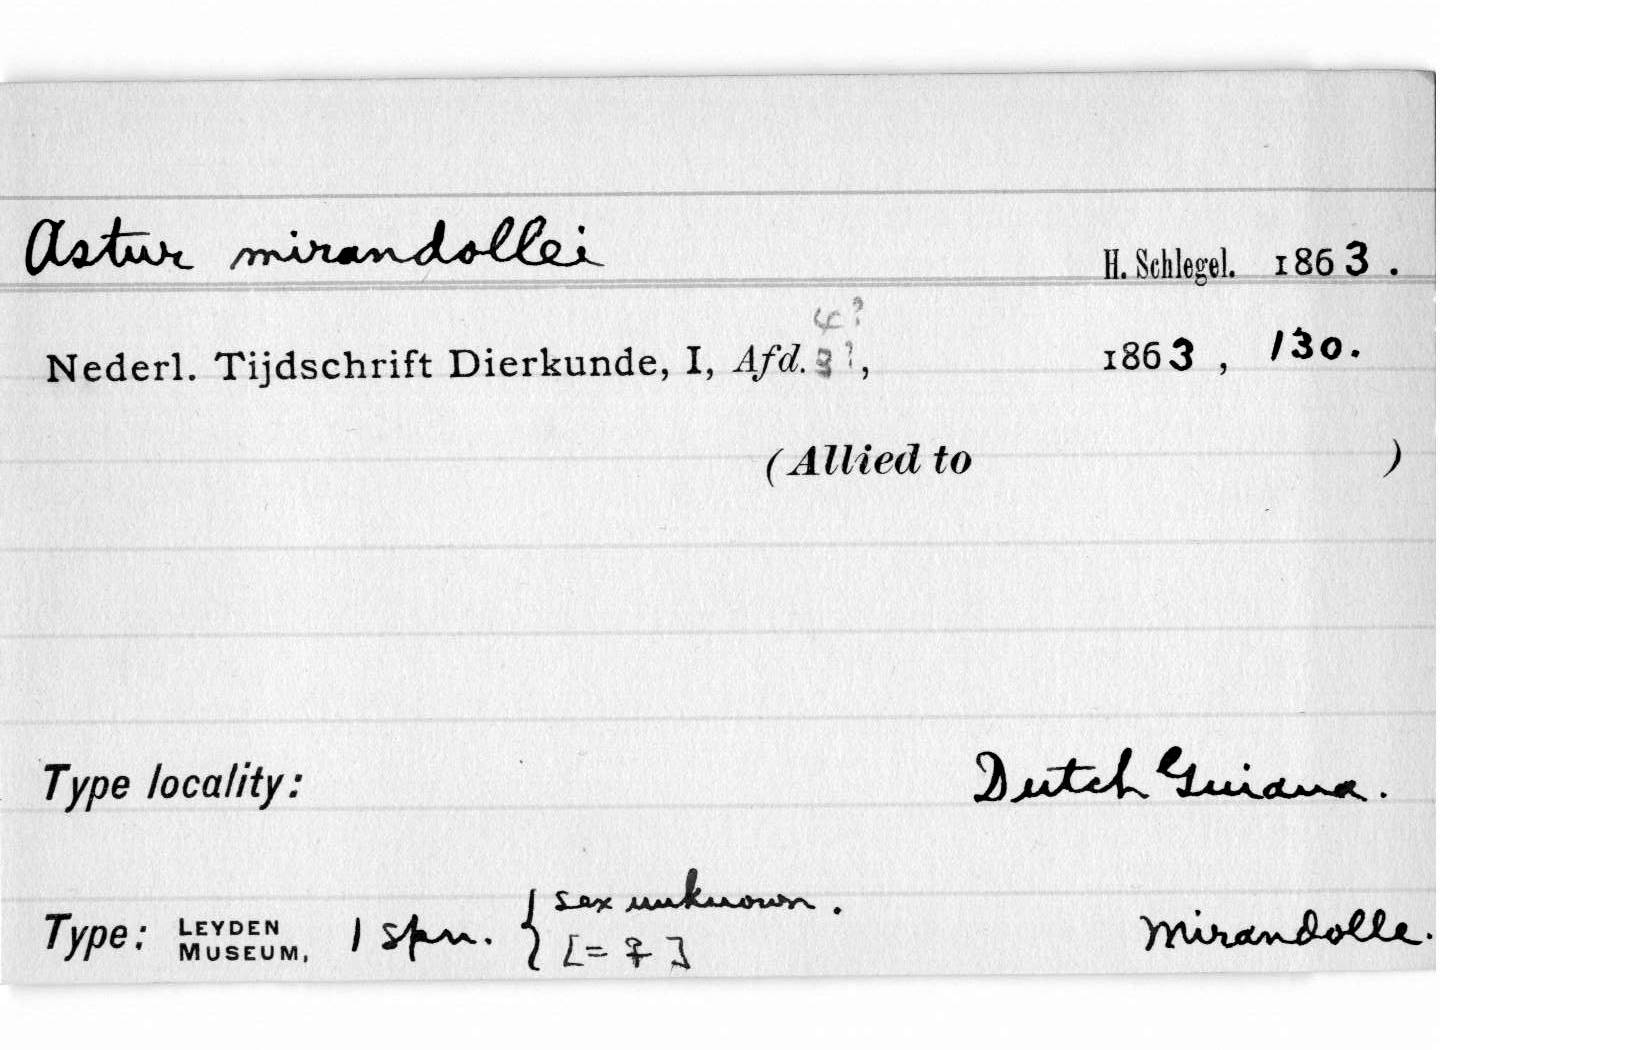 Astur mirandollei H. Schlegel. 1863.
4?
Nederl. Tijdschrift Dierkunde, I, Afd. 3?, 1863, 130.
(Allied to )
Type locality: Dutch Guiana.
Type: LEYDEN MUSEUM, 1 spn. { sex unknown. Mirandolle.
[=♀]